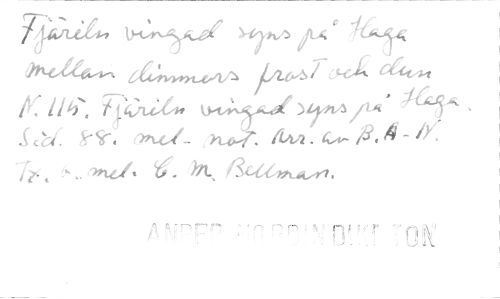 Fjäriln vingad syns på Haga
mellan dimmors frost och dun
N. 115. Fjäriln vingad syns på Haga.
Sid. 88. mel- not. Arr. av B. A-N.
Tx. o. mel. C. M. Bellman.
DIKT TON